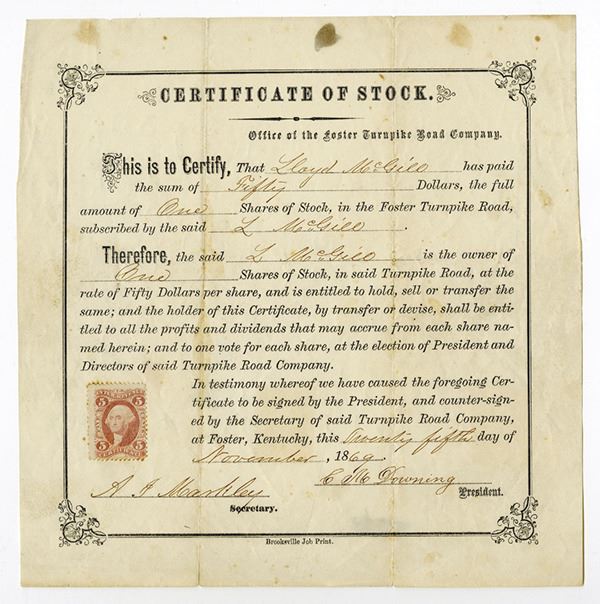 CERTIFICATE OF STOCK.
Office of the Foster Turnpike Road Company.
This is to Certify, That Lloyd McGill has paid
the sum of Fifty Dollars, the full
amount of One Shares of Stock, in the Foster Turnpike Road,
subscribed by the said L McGill.
Therefore, the said L McGill is the owner of
One Shares of Stock, in said Turnpike Road, at the
rate of Fifty Dollars per share, and is entitled to hold, sell or transfer the
same; and the holder of this Certificate, by transfer or devise, shall be enti-
tled to all the profits and dividends that may accrue from each share na-
med herein; and to one vote for each share, at the election of President and
Directors of said Turnpike Road Company.
In testimony whereof we have caused the foregoing Cer-
tificate to be signed by the President, and counter-sign-
ed by the Secretary of said Turnpike Road Company,
at Foster, Kentucky, this Twenty fifth day of
November, 1869
5 5
5 5
CERTIFICATE
A J Markley
Secretary.
C M Downing
President.
Brooksville Job Print.